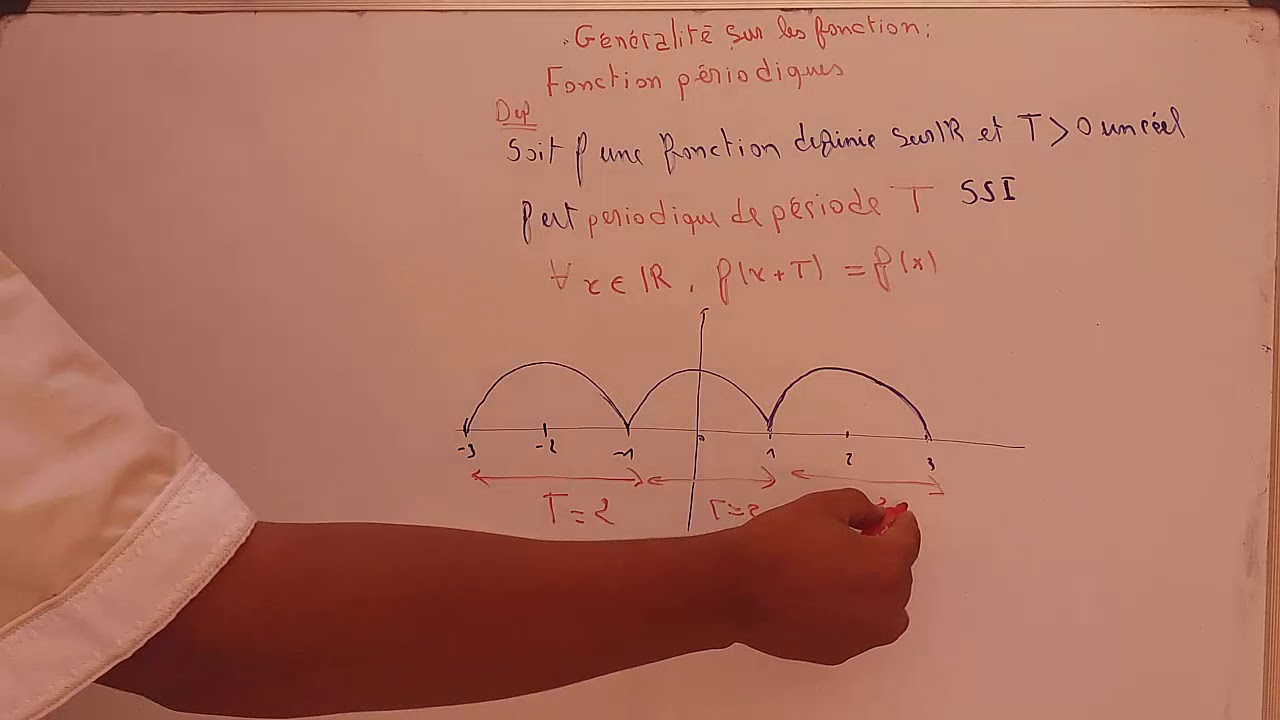 Généralité sur les fonction:
Fonction périodiques
Def
Soit f une fonction definie sur IR et T > 0 un réel
f est periodique de période T SSI
∀ x ∈ IR, f(x+T) = f(x)
-3 -2 -1 0 1 2 3
T=2 T=2